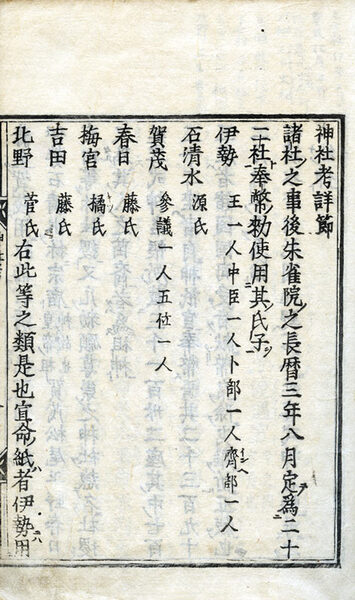 神社考詳節
諸社之事後朱雀院之長暦三年八月定為二十
二社奉幣勅使用其氏子
伊勢 王一人中臣一人卜部一人齊部一人
石清水 源氏
賀茂 參議一人五位一人
春日 藤氏
梅宮 橘氏
吉田 藤氏
北野 菅氏右此等之類是也宣命紙者伊勢用